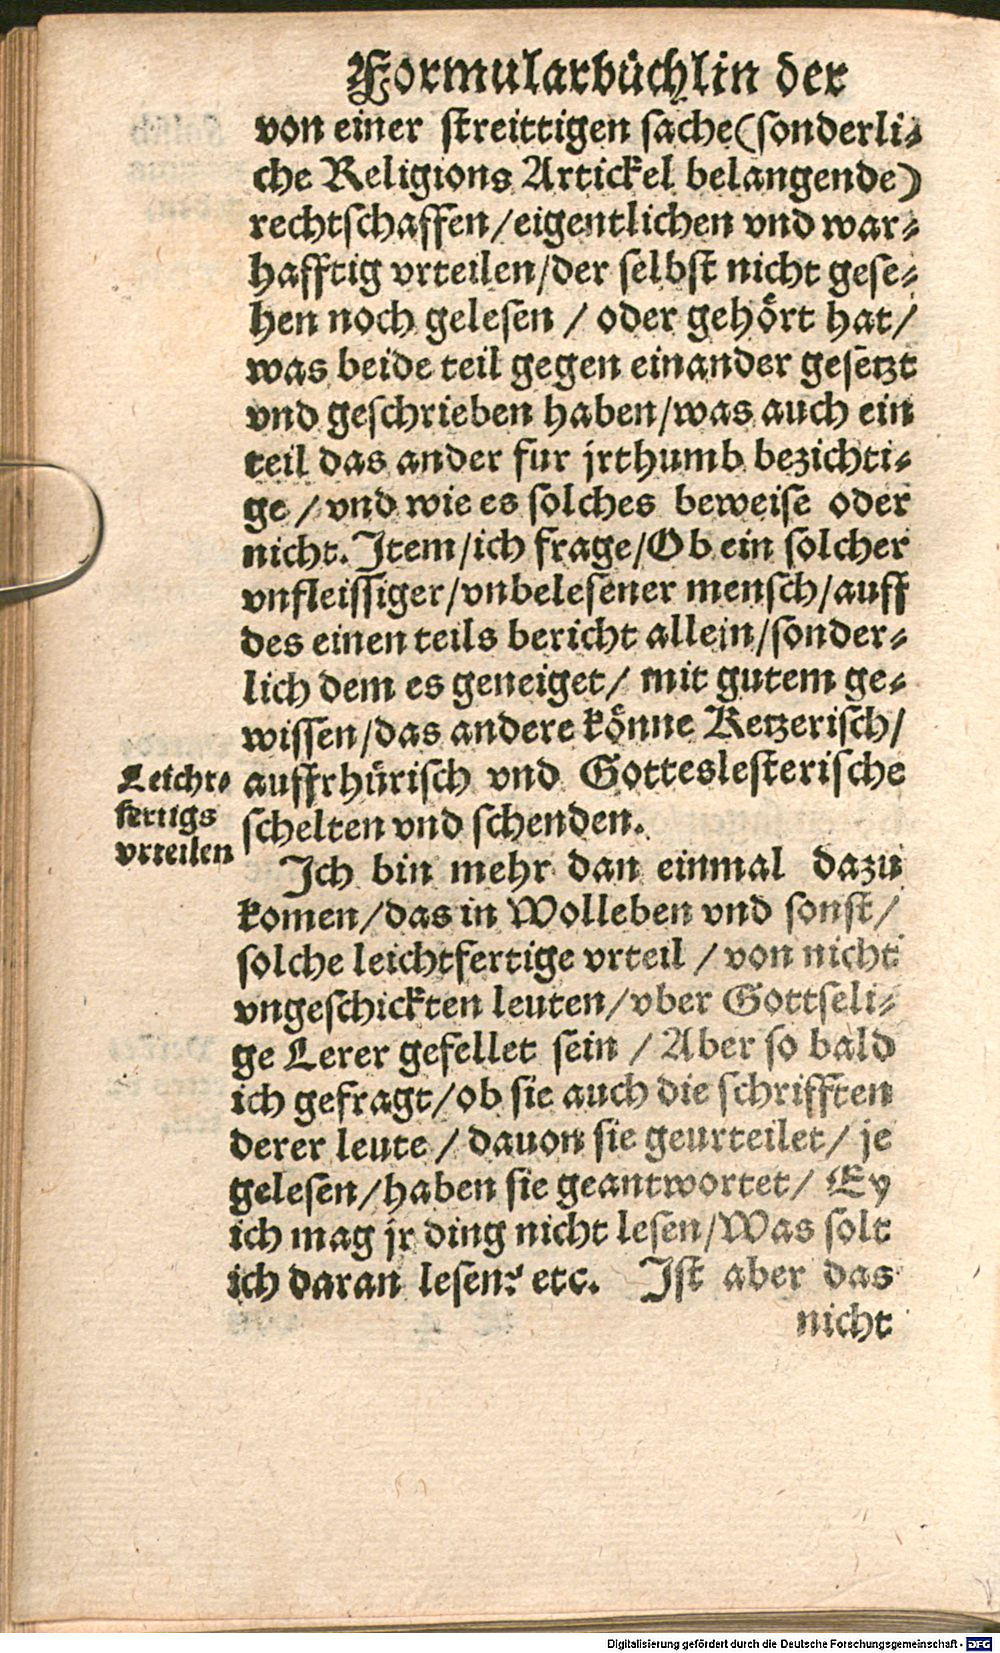 Formularbüchlin der
von einer streittigen sache (sonderli⸗
che Religions Artickel belangende)
rechtschaffen / eigentlichen vnd war⸗
hafftig vrteilen / der selbst nicht gese⸗
hen noch gelesen / oder gehört hat /
was beide teil gegen einander gesetzt
vnd geschrieben haben / was auch ein
teil das ander fur jrthumb bezichti⸗
ge / vnd wie es solches beweise oder
nicht. Item / ich frage / Ob ein solcher
vnfleissiger / vnbelesener mensch / auff
des einen teils bericht allein / sonder⸗
lich dem es geneiget / mit gutem ge⸗
wissen / das andere könne Ketzerisch /
auffrhürisch vnd Gotteslesterische
schelten vnd schenden.
Leicht⸗
fertigs
vrteilen
Ich bin mehr dan einmal dazu
komen / das in Wolleben vnd sonst /
solche leichtfertige vrteil / von nicht
vngeschickten leuten / vber Gottseli⸗
ge Lerer gefellet sein / Aber so bald
ich gefragt / ob sie auch die schrifften
derer leute / dauon sie geurteilet / je
gelesen / haben sie geantwortet / Ey
ich mag jr ding nicht lesen / Was solt
ich daran lesen? etc. Ist aber das
nicht
Digitalisierung gefördert durch die Deutsche Forschungsgemeinschaft - DFG